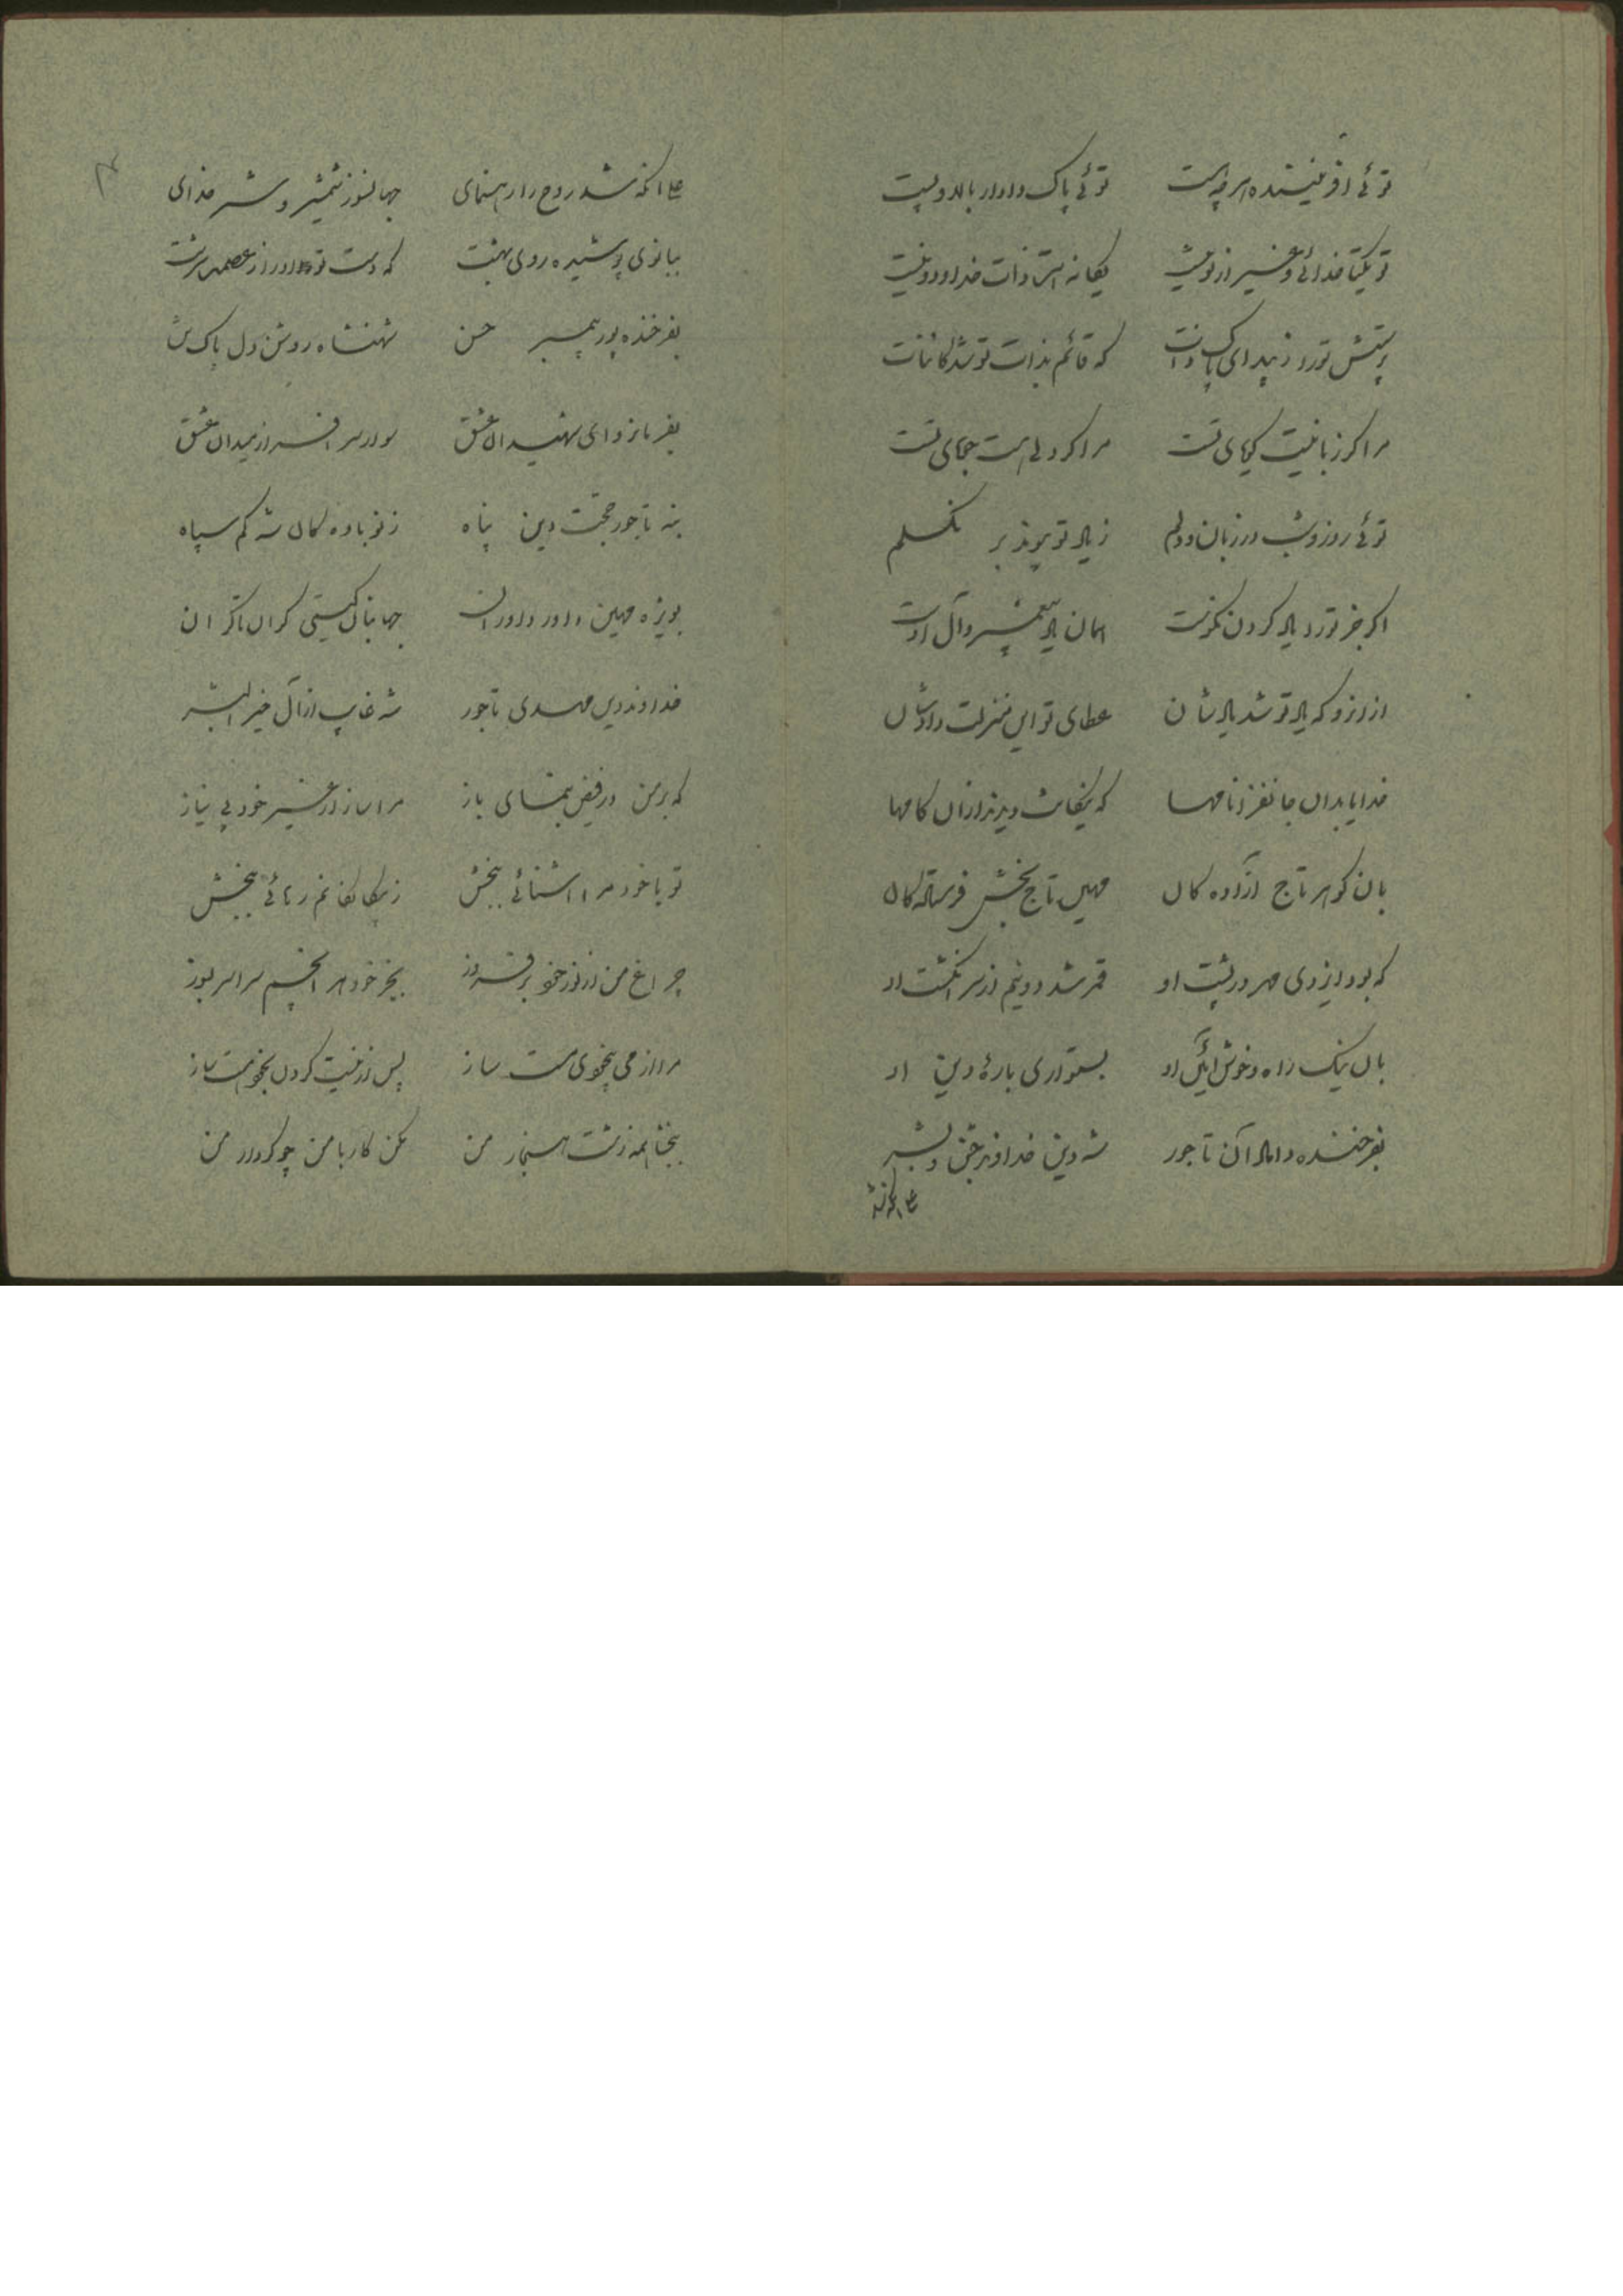 توئی آفریننده هر چه هست توئی پاک دادار بالا و پست
تو یکتا خدائی و غیر از تو نیست یگانه است ذات خدا و دو نیست
پرستش تو را زیبد ای پاک ذات که قائم بذات تو شد کائنات
مرا گر زبانیست گویای تست مرا گر دلی هست جویای تست
توئی روز و شب در زبان و دلم ز یاد تو پیوند بر نگسلم
اگر جز تو را یاد کردن نکوست همان یاد پیغمبر و آل اوست
از آنرو که یاد تو شد یادشان عطای تو این منزلت دادشان
خدایا بدان جانفزا نامها که نیکان پذیرند از آن کامها
بان گوهر تاج آزادگان مهین تاج بخش فرستادگان
که بود ایزدی مهر در پشت او قمر شد دو نیم از سر انگشت او
بان نیک راه و خوش آئین او بستواری باره دین او
بفرخنده داماد آن تاجور شه دین خداوند جن و بشر
علی آنکه شد
علی آنکه شد روح را رهنمای جهانسوز شمشیر و شیر خدای
ببانوی پوشیده روی بهشت که دست تو او را ز عصمت سرشت
بفرخنده پور پیمبر حسن شهنشاه روشن دل پاک تن
بفرمانروای شهیدان عشق سوار سرافراز میدان عشق
بنه تاجور حجت دین پناه ز نوباوه گان شه کم سپاه
بویژه مهین داور داوران جهانبان گیتی کران تا کران
خداوند دین مهدی تاجور شه غایب از آل خیر البشر
که بر من در فیض بنمای باز مرا ساز از غیر خود بی نیاز
تو با خود مرا آشنائی ببخش ز بیگانگانم رهائی ببخش
چراغ من از نور خود بر فروز بجز خود هر آنچم سراسر بسوز
مرا از می بیخودی مست ساز پس از نیست کردن بخود هست ساز
ببخشا همه زشت هنجار من مکن کار با من چو کردار من